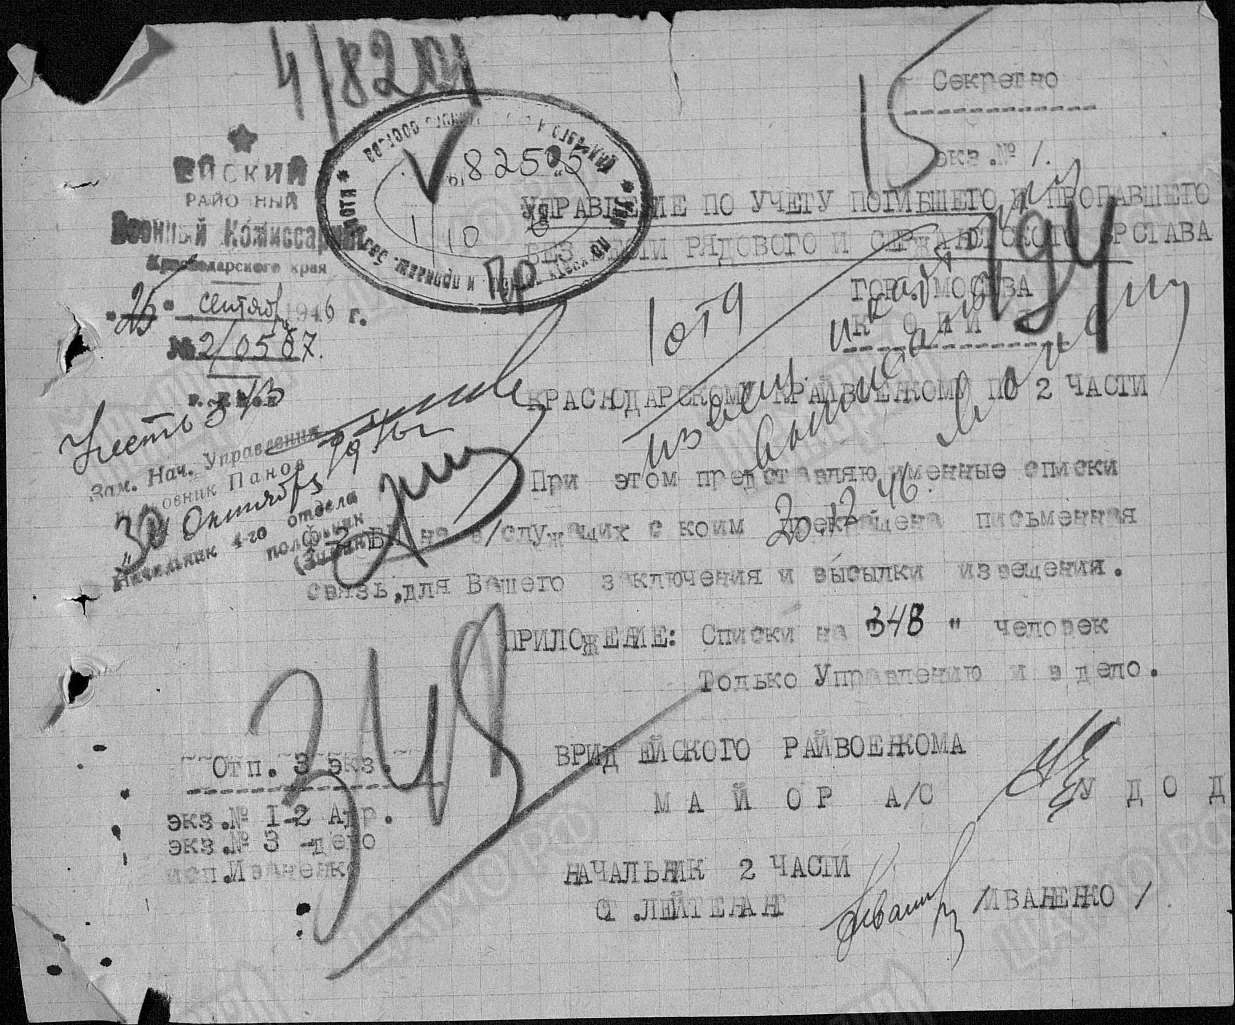 4/820
15
Секретно
экз.№ 1.
ЕЙСКИЙ
РАЙОННЫЙ
Военный Комиссариат
Краснодарского края
"25" сентября 1946 г.
№ 2/0587.
г. Ейск
82595
1/10
УПРАВЛЕНИЕ ПО УЧЕТУ ПОГИБШЕГО И ПРОПАВШЕГО
БЕЗ ВЕСТИ РЯДОВОГО И СЕРЖАНТСКОГО СОСТАВА
ГОР. МОСКВА
К О П И Я
КРАСНОДАРСКОМУ КРАЙВОЕНКОМУ ПО 2 ЧАСТИ
Учесть 343
Зам. Нач. Управления
Панов
30 Октября
Начальник 4-го отдела
При этом представляю именные списки
на в/служащих с коим прекращена письменная
связь,для Вашего заключения и высылки извещения.
20.12.46.
ПРИЛОЖЕНИЕ: Списки на "348" человек
Только Управлению и в дело.
348
Отп. 3 экз.
экз.№ 1-2 Адр.
экз.№ 3 -дело
исп.Иваненко
ВРИД ЕЙСКОГО РАЙВОЕНКОМА
М А Й О Р А/С У Д О Д
НАЧАЛЬНИК 2 ЧАСТИ
СТ.ЛЕЙТЕНАНТ /ИВАНЕНКО/
ЦАМО РФ